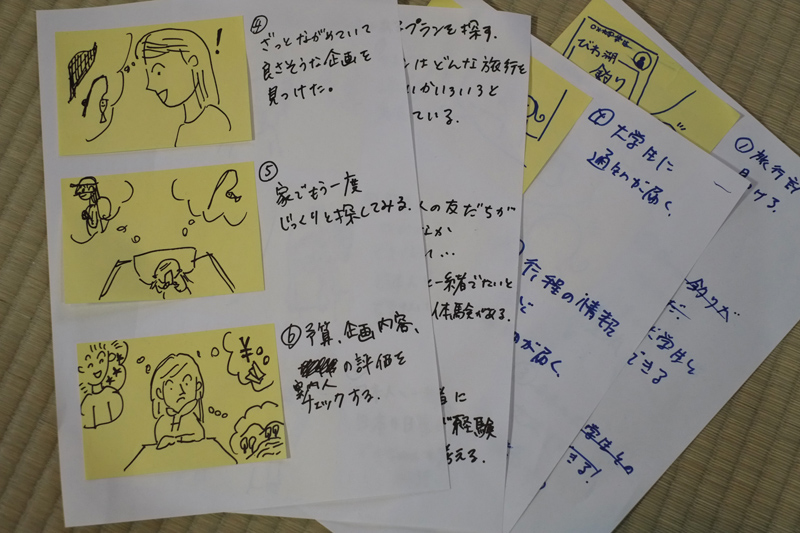 ④
ざっとながめていて
良さそうな企画を
見つけた。
⑤
家でもう一度
じっくりと探してみる。
⑥
予算、企画内容、
の評価を
案内人
チェックする。
!
¥
プランを探す。
はどんな旅行を
いかいろいろと
ている。
人の友だちが
なか
て…
一緒でたいと
体験がある。
に
経験
考える。
④ 大学生に
通知が届く。
行程の情報
と
が届く。
びわ湖
釣り
① 旅行
ける。
釣りが
大学生と
できる
学生との
きる!